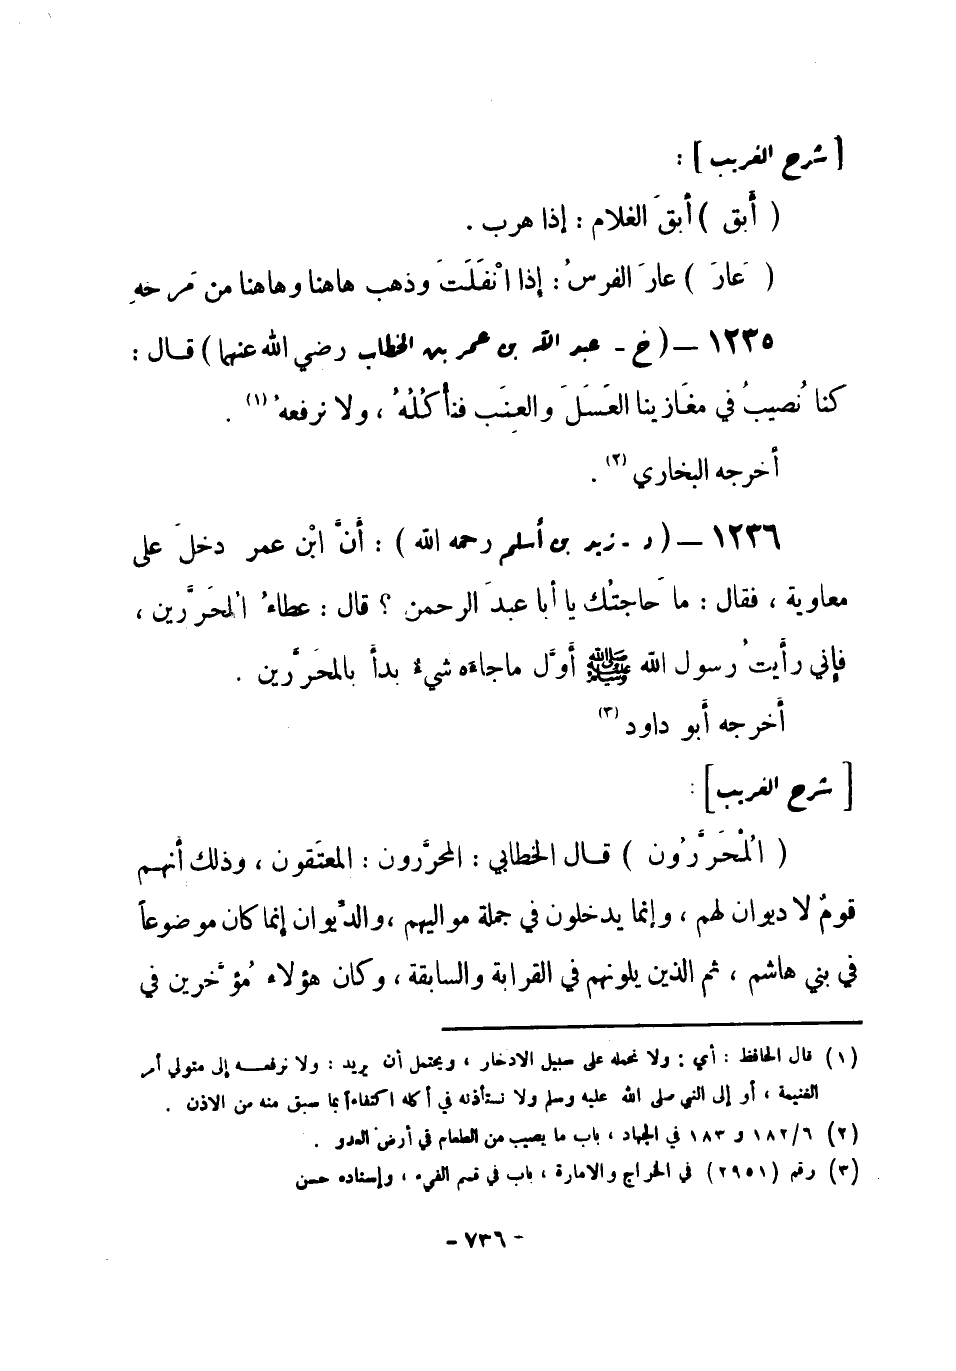 [ شرح الغريب ] :
( أَبق ) أَبقَ الغلام : إذا هرب .
( عَارَ ) عارَ الفرسُ : إذا انْفَلَتَ وذهب هاهنا وهاهنا من مَرحه
١٢٣٥ – ( خ - عبد الله بن عمر بن الخطاب رضي الله عنهما ) قال :
كنا نُصيبُ في مغَازينا العَسَلَ والعِنَب فنأكُلُهُ ، ولا نرفعهُ (١) .
أخرجه البخاري (٢) .
١٢٣٦ – ( د - زيد بن أسلم رحمه الله ) : أَنَّ ابْن عمر دخلَ على
معاوية ، فقال : مَا حَاجتُك يا أبا عبدَ الرحمن ؟ قال : عطاءُ المُحَرَّرين ،
فإني رأَيتُ رسول الله ﷺ أَوَّل ماجاءَه شيءٌ بدأَ بالمحَرَّرين .
أخرجه أبو داود (٣)
[ شرح الغريب ] :
( المُحَرَّرُون ) قال الخطابي : المحرَّرون : المعتَقون ، وذلك أنهم
قومٌ لا ديوان لهم ، وإنما يدخلون في جملة مواليهم ، والدِّيوان إنما كان موضوعاً
في بني هاشم ، ثم الذين يلونهم في القرابة والسابقة ، وكان هؤلاء مُؤَخَّرين في
(١) قال الحافظ : أي : ولا نحمله على سبيل الادخار ، ويحتمل أن يريد : ولا نرفعه إلى متولي أمر
الغنيمة ، أو إلى النبي صلى الله عليه وسلم ولا نستأذنه في أكله اكتفاءاً بما سبق منه من الاذن .
(٢) ١٨٢/٦ و ١٨٣ في الجهاد ، باب ما يصيب من الطعام في أرض العدو .
(٣) رقم (٢٩٥١) في الخراج والامارة ، باب في قسم الفيء ، وإسناده حسن
- ٧٣٦ -